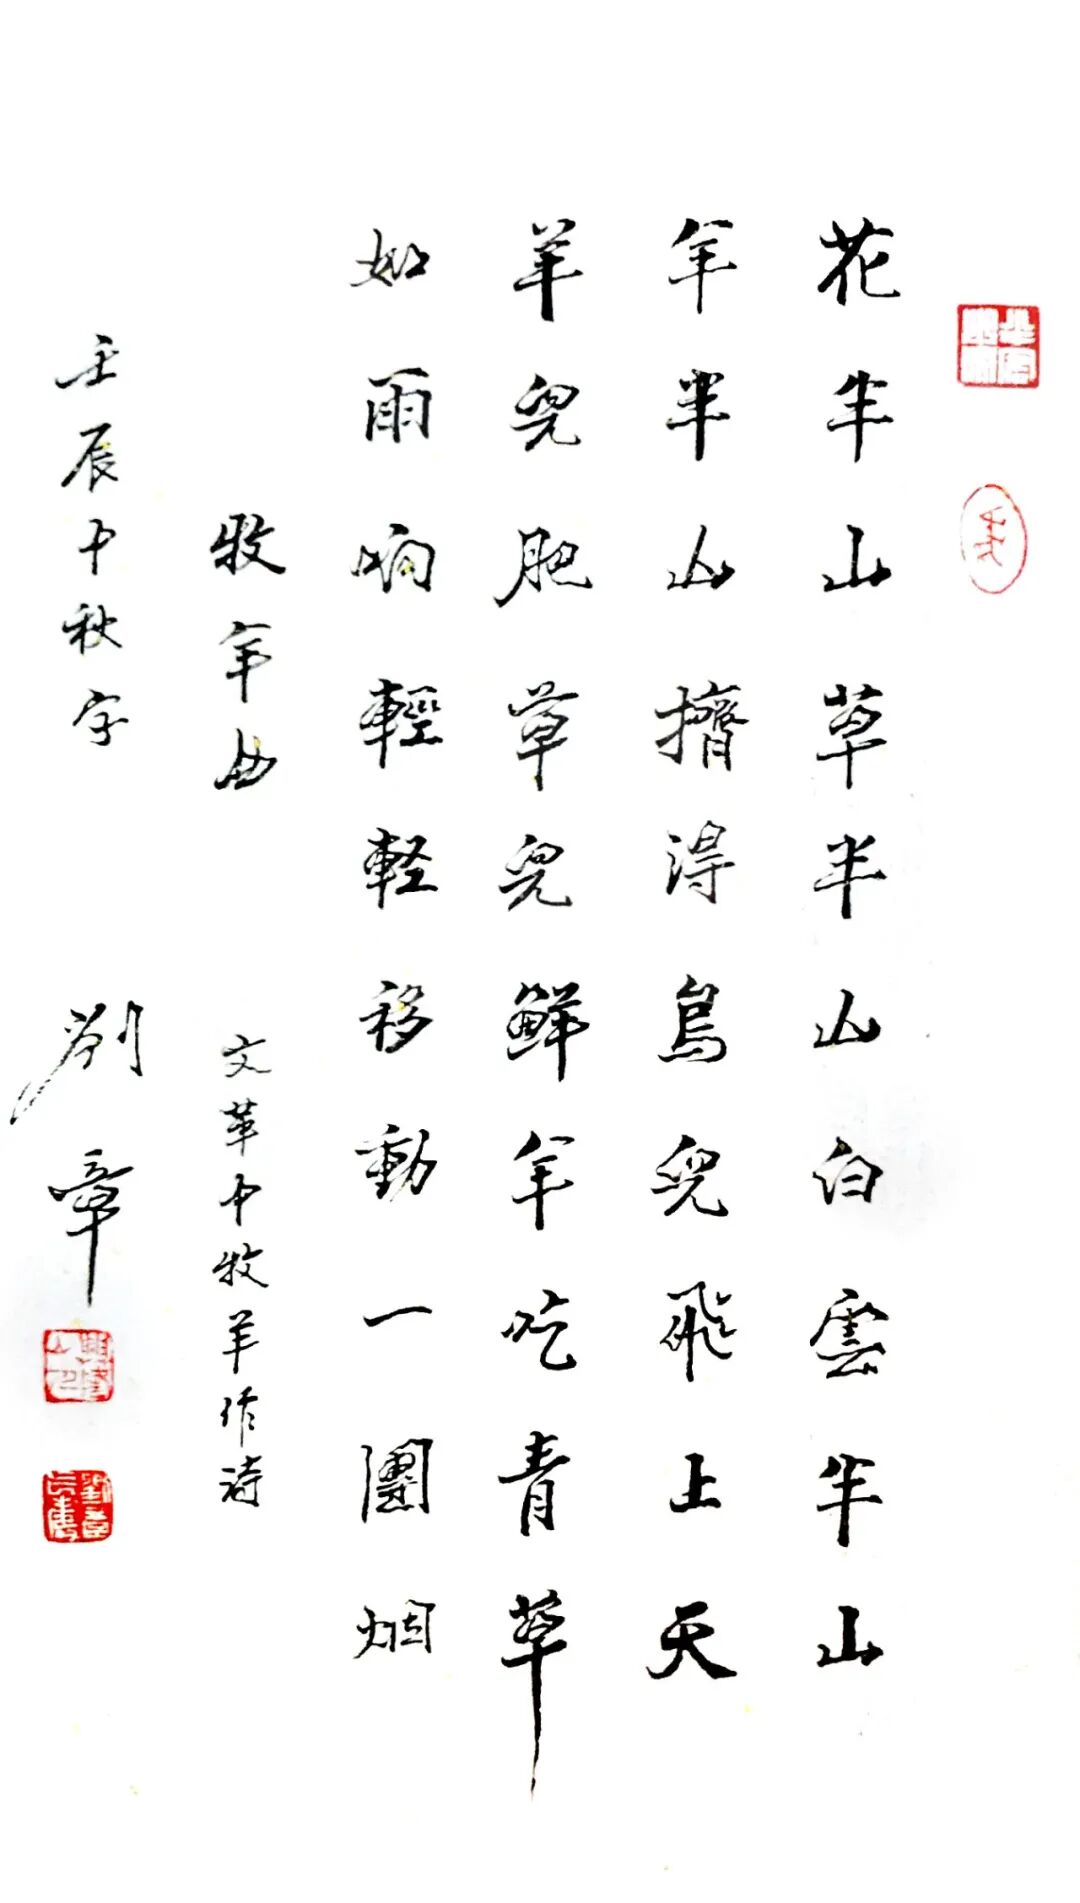 花半山草半山白雲半山
羊半山擠得鳥兒飛上天
羊兒肥草兒鮮羊吃青草
如雨响輕軽移動一團烟
牧羊曲 文革中牧羊作詩
壬辰中秋字 劉章